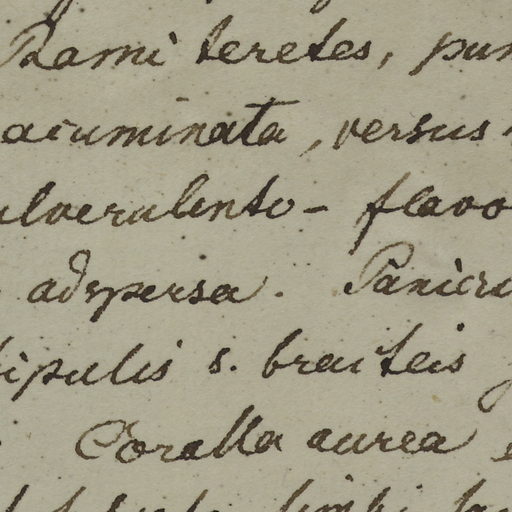 Rami teretes, pun
acuminata, versus
ulverulento- flavo
adspersa. Panicu
tipulis s. bracteis
Corolla aurea
limbi